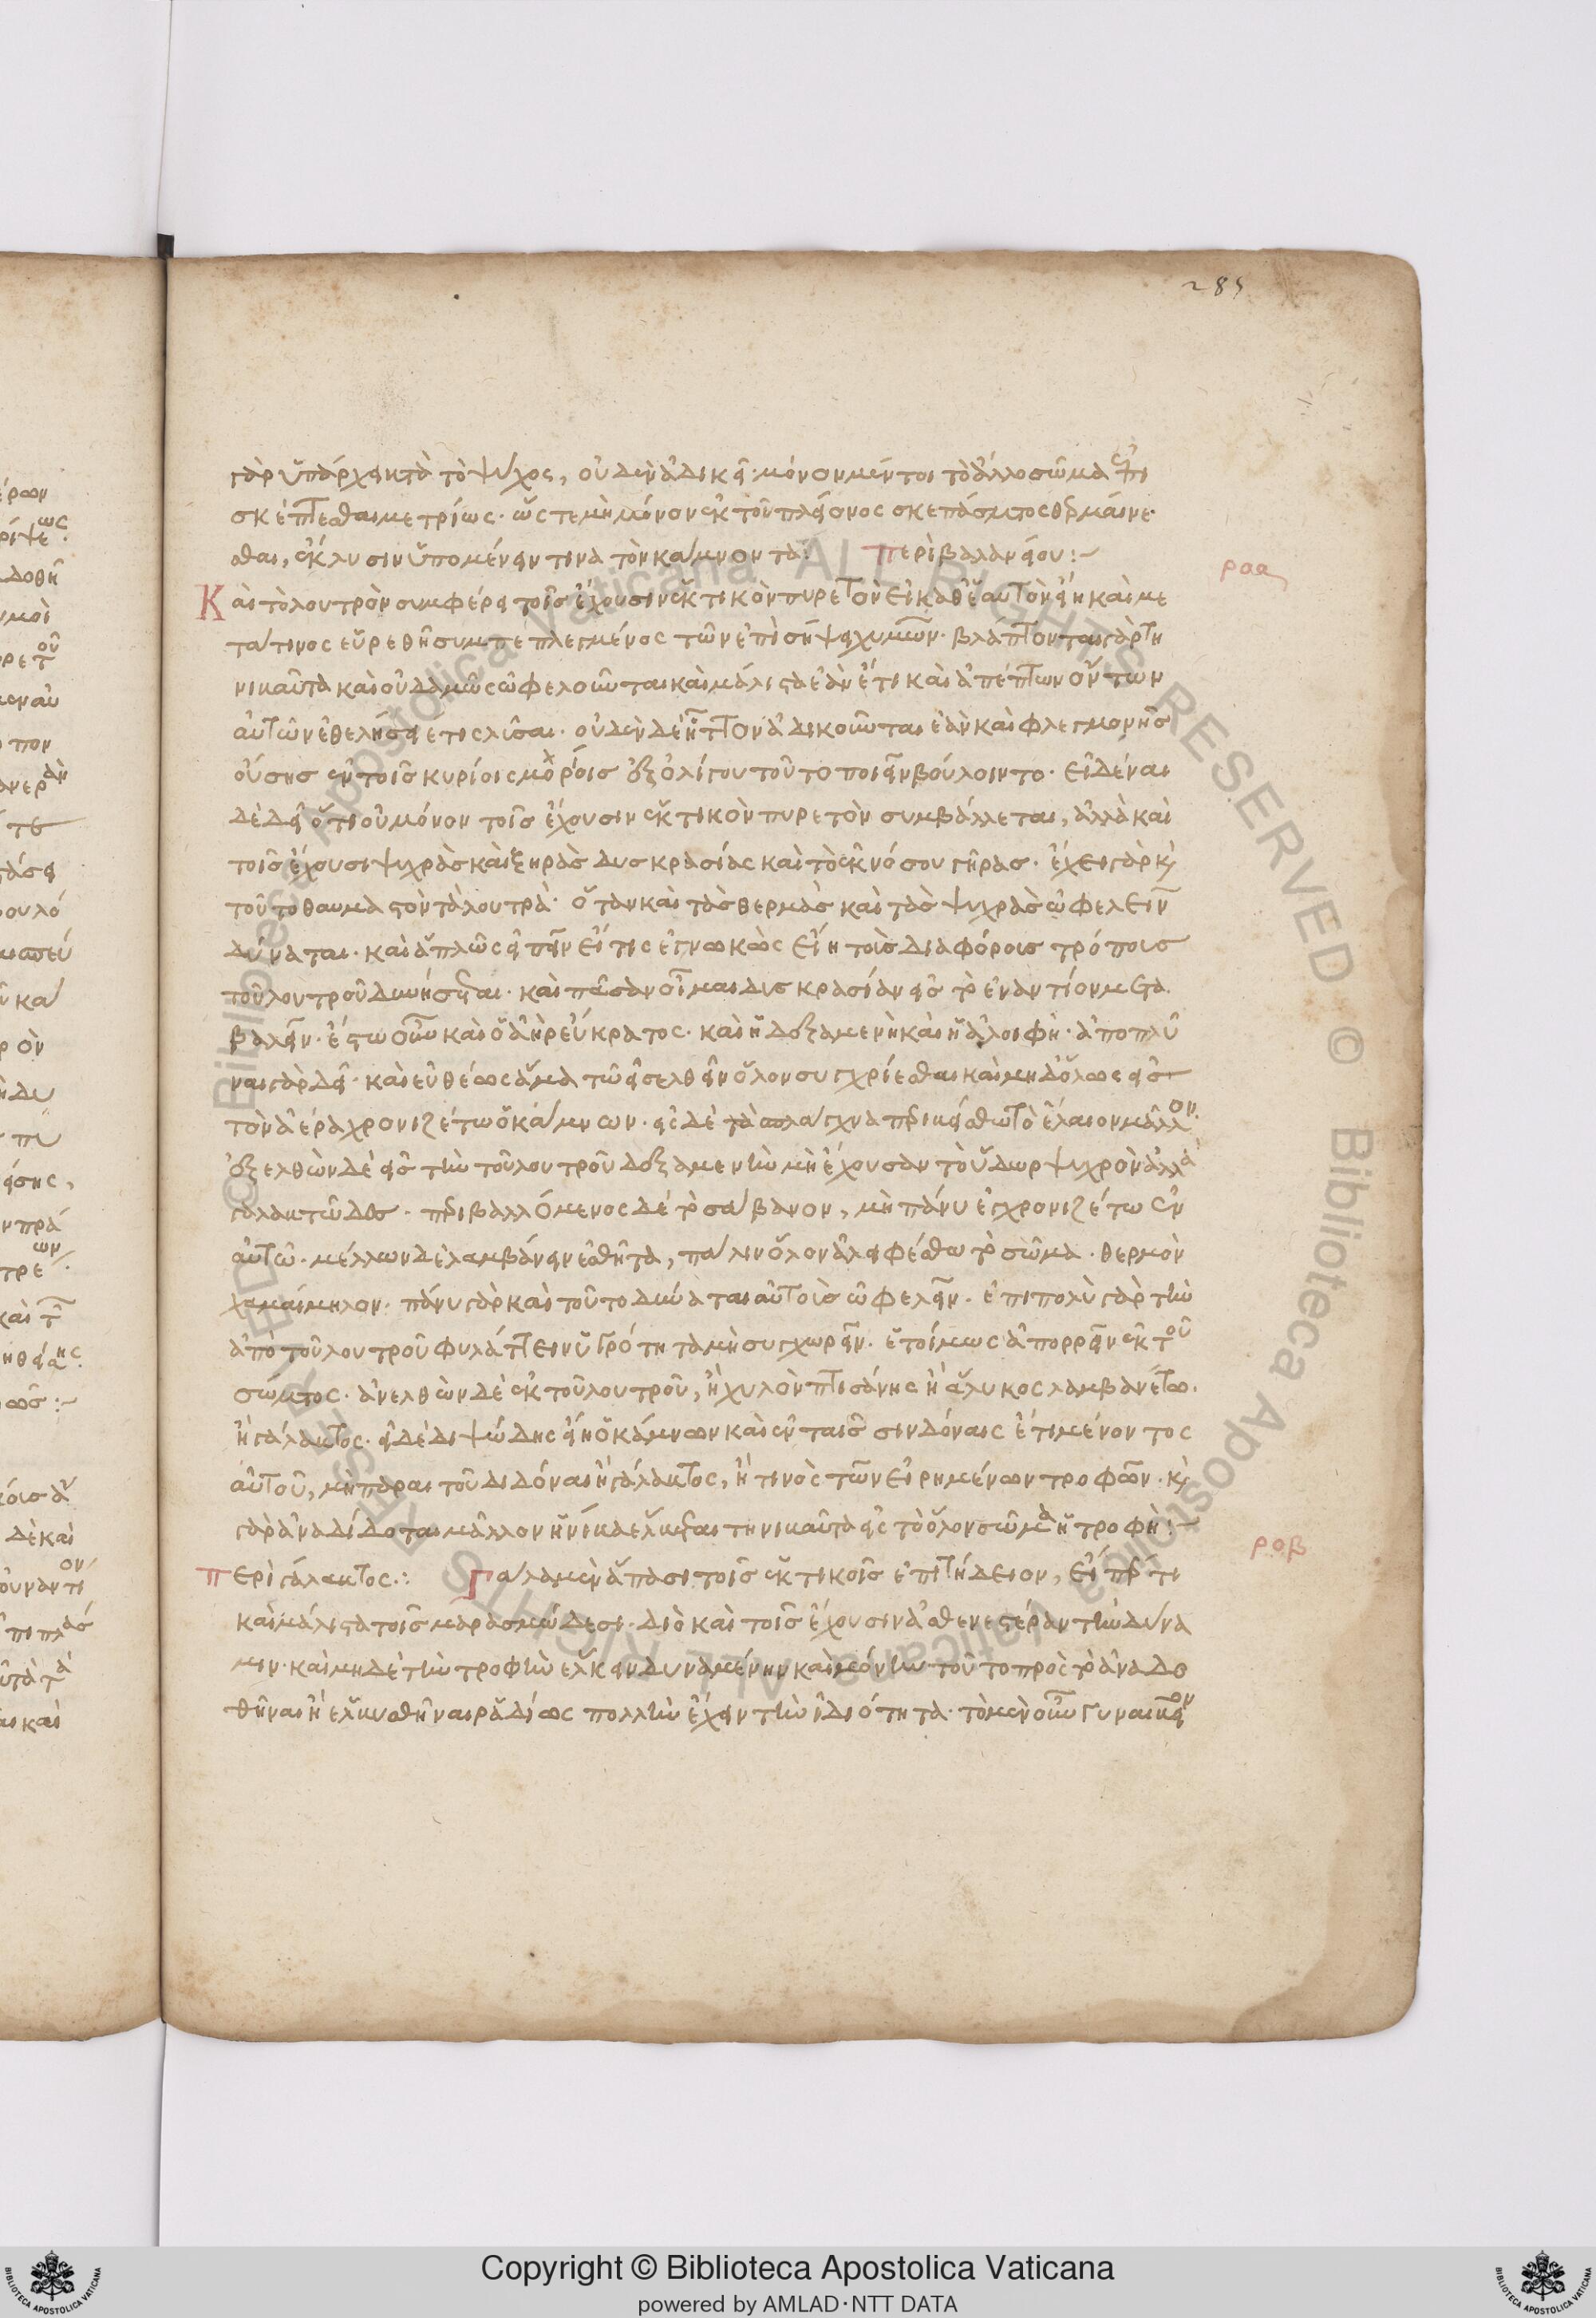 285
γὰρ ὑπάρχη κατὰ τὸ ψύχος, οὐδὲν ἀδικεῖ· μόνον μέντοι τὸ ἄλλο σῶμα ἐπι
σκέπτεσθαι μετρίως· ὥστε μὴ μόνον ἐκ τοῦ πλείονος σκεπάσματος θερμαίνε
σθαι, ἔκλυσιν ὑπομένειν τινα τὸν κάμνοντα: Περὶ βαλανείου:~
ροα
Καὶ τὸ λουτρὸν συμφέρει τοῖς ἔχουσιν ἑκτικὸν πυρετὸν εἰ καθ' ἑαυτὸν εἴη καὶ μὴ με
τά τινος εὑρεθῇ συμπεπλεγμένος τῶν ἐπὶ σήψει χυμῶν· βλάπτονται γὰρ τη
νικαῦτα καὶ οὐδαμῶς ὠφελοῦνται καὶ μάλιστα ἐὰν ἔτι καὶ ἀπέπτων ὄντων
αὐτῶν ἐθελήσῃ τις λοῦσαι· οὐδὲν δὲ ἧττον ἀδικοῦνται ἐὰν καὶ φλεγμονῆς
οὔσης ἐν τοῖς κυρίοις μορίοις ἐξ ὀλίγου τοῦτο ποιεῖν βούλοιντο· εἰδέναι
δὲ δεῖ ὅτι οὐ μόνον τοῖς ἔχουσιν ἑκτικὸν πυρετὸν συμβάλλεται, ἀλλὰ καὶ
τοῖς ἔχουσι ψυχρὰς καὶ ξηρὰς δυσκρασίας καὶ τὸ ἐκ νόσου γῆρας· ἔχει γὰρ καὶ
τοῦτο θαυμαστὸν τὰ λουτρά· ὅταν καὶ τὰς θερμὰς καὶ τὰς ψυχρὰς ὠφελεῖν
δύναται· καὶ ἁπλῶς εἰπεῖν εἴ τις ἐγνωκὼς εἴη τοῖς διαφόροις τρόποις
τοῦ λουτροῦ δυνήσεται· καὶ πᾶσαν οἶμαι δυσκρασίαν εἰς τὸ ἐναντίον μετα
βαλεῖν· ἔστω οὖν καὶ ὁ ἀὴρ εὔκρατος· καὶ ἡ δεξαμενὴ καὶ ἡ ἀλοιφή· ἀποπλῦ
ναι γὰρ δεῖ· καὶ εὐθέως ἅμα τῷ εἰσελθεῖν ὅλον συγχρίεσθαι καὶ μηδόλως εἰς
τὸν ἀέρα χρονιζέτω ὁ κάμνων· εἰς δὲ τὰ σπλάγχνα περικείσθω τὸ ἔλαιον μᾶλλον·
ἐξελθὼν δὲ εἰς τὴν τοῦ λουτροῦ δεξαμενὴν μὴ ἔχουσαν τὸ ὕδωρ ψυχρὸν ἀλλὰ
γαλακτῶδες· περιβαλλόμενος δὲ τὸ σάβανον, μὴ πάνυ ἐγχρονιζέτω ἐν
αὐτῷ· μέλλων δὲ λαμβάνειν ἐσθῆτα, πάλιν ὅλον ἀλειφέσθω τὸ σῶμα· θερμὸν
χαμαίμηλον· πάνυ γὰρ καὶ τοῦτο δύναται αὐτοῖς ὠφελεῖν· ἐπιπολὺ γὰρ τὴν
ἀπὸ τοῦ λουτροῦ φυλάττειν ὑγρότητα μὴ συγχωρεῖν· ἑτοίμως ἀπορρεῖν ἐκ τοῦ
σώματος· ἀνελθὼν δὲ ἐκ τοῦ λουτροῦ, ἢ χυλὸν πτισάνης ἢ ἄλυκος λαμβανέτω·
ἢ γάλακτος· εἰ δὲ διψώδης εἴη ὁ κάμνων καὶ ἐν ταῖς σινδόναις ἔτι μένοντος
αὐτοῦ, μὴ παραιτοῦ διδόναι ἢ γάλακτος, ἤ τινος τῶν εἰρημένων τροφῶν· καὶ
γὰρ ἀναδίδοται μᾶλλον ἡνίκα ἕλκεται τηνικαῦτα εἰς τὸ ὅλον σῶμα ἡ τροφή:~
ροβ
Περὶ γάλακτος: Γάλα μὲν ἅπασι τοῖς ἑκτικοῖς ἐπιτήδειον, εἴπερ τι
καὶ μάλιστα τοῖς μαρασμώδεσι· διὸ καὶ τοῖς ἔχουσιν ἀσθενεστέραν τὴν δύνα
μιν· καὶ μηδὲ τὴν τροφὴν ἕλκειν δυναμένην καὶ μόνην τοῦτο πρὸς τὸ ἀναδο
θῆναι ἢ ἑλκυσθῆναι ῥαδίως πολλὴν ἔχειν τὴν ἰδιότητα· τὸ μὲν οὖν γυναικεῖον
Copyright © Biblioteca Apostolica Vaticana
powered by AMLAD·NTT DATA